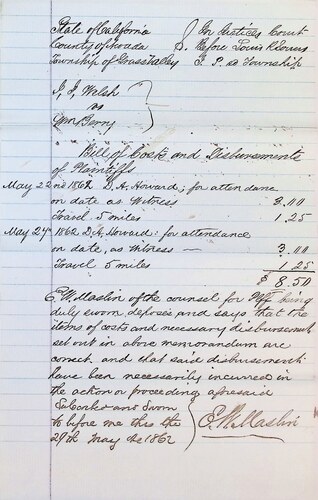 State of California
County of Nevada
Township of Grass Valley
In Justices Court
Before Louis
J. P. Township
Walsh
vs
Berry
Bill of Costs and Disbursements
of Plaintiffs
May 22nd 1862 D. A. Howard; for attendance
on date as Witness 3.00
Travel 5 miles 1.25
May 29 1862 D. A. Howard: for attendance
on date, as Witness — 3.00
Travel 5 miles 1.25
$ 8.50
E. W. Maslin of the counsel for Plff being
duly sworn deposes and says that the
items of costs and necessary disbursement
set out in above memorandum are
correct, and that said disbursements
have been necessarily incurred in
the action or proceeding aforesaid
Subscribed and Sworn
to before me this the
29th May 1862
E. W. Maslin